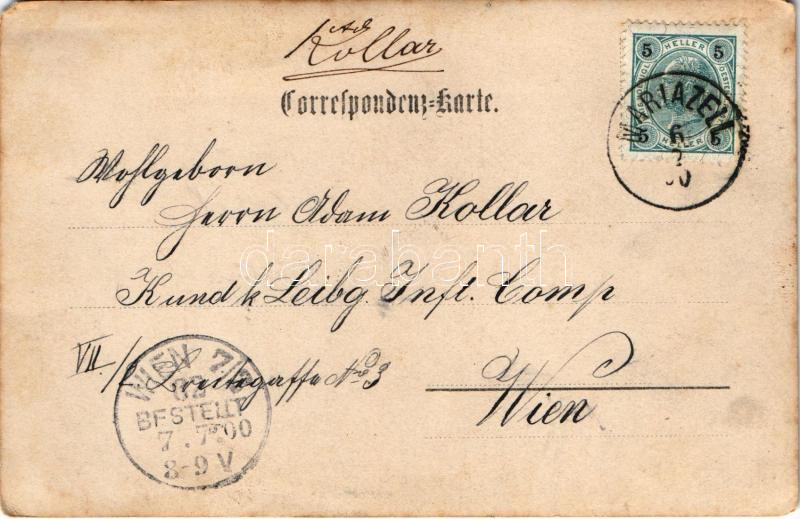 Ad
Kollar
Correspondenz=Karte.
5 HELLER 5
5 HELLER 5
MARIAZELL
6
2
00
Wohlgeborn
Herrn Adam Kollar
K und k Leibg. Inft. Comp
VII./2 No 3
Wien
WIEN 7/2
BESTELLT
7. 2. 00
8-9 V
darabanth